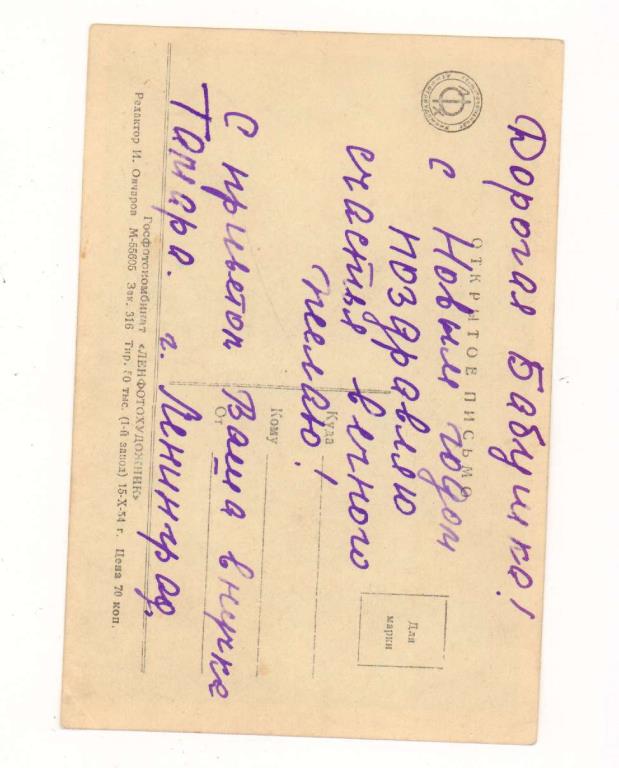 Дорогая Бабушка!
ОТКРЫТОЕ ПИСЬМО
с Новым годом
поздравляю
счастья вечного
желаю!
Куда
Кому
С приветом Ваша внучка
От
Тамара. г. Ленинград.
Для
марки
Госфотокомбинат «ЛЕНФОТОХУДОЖНИК»
Редактор И. Овчаров М-55605 Зак. 316 Тир. 50 тыс. (1-й завод) 15-X-54 г. Цена 70 коп.